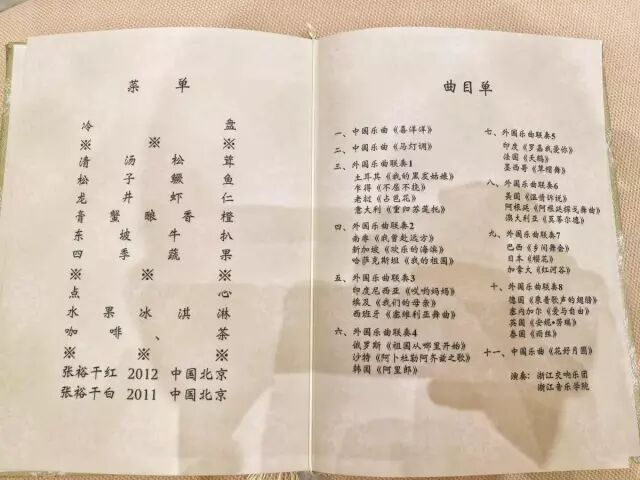 菜 单
冷 盘
※
清 汤 松 茸
松 子 鳜 鱼
龙 井 虾 仁
膏 蟹 酿 香 橙
东 坡 牛 扒
四 季 蔬 果
※ ※
点 心
水 果 冰 淇 淋
咖 啡 、 茶
※ ※ ※
张裕干红 2012 中国北京
张裕干白 2011 中国北京
曲目单
一、中国乐曲《喜洋洋》
二、中国乐曲《马灯调》
三、外国乐曲联奏1
土耳其《我的黑发姑娘》
乍得《不屈不挠》
老挝《占芭花》
意大利《重归苏莲托》
四、外国乐曲联奏2
南非《我曾赴远方》
新加坡《欢乐的海滨》
哈萨克斯坦《我的祖国》
五、外国乐曲联奏3
印度尼西亚《哎哟妈妈》
埃及《我们的母亲》
西班牙《塞维利亚舞曲》
六、外国乐曲联奏4
俄罗斯《祖国从哪里开始》
沙特《阿卜杜勒阿齐兹之歌》
韩国《阿里郎》
七、外国乐曲联奏5
印度《罗摩我爱你》
法国《天鹅》
墨西哥《草帽舞》
八、外国乐曲联奏6
美国《温情诉说》
阿根廷《阿根廷探戈舞曲》
澳大利亚《莫蒂尔德》
九、外国乐曲联奏7
巴西《乡间舞会》
日本《樱花》
加拿大《红河谷》
十、外国乐曲联奏8
德国《乘着歌声的翅膀》
塞内加尔《爱与自由》
英国《安妮•劳瑞》
泰国《雨丝》
十一、中国乐曲《花好月圆》
演奏：浙江交响乐团
浙江音乐学院